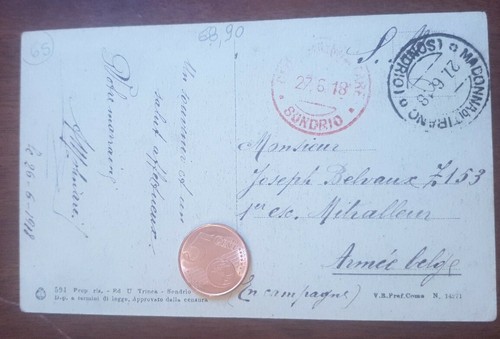 65
EB,90
S.
27.6.18
SONDRIO
MADONNA DI TIRANO
(SONDRIO)
21.6.18
Un souvenir et un
salut affectueux.
Votre marraine
le 26-6-1918
Monsieur
Joseph Delvaux Z153
1er esc. Mitrailleur
Armée belge
(en campagne)
591 Prop. ris. - Ed. U. Trinca - Sondrio
Dep. a termini di legge, Approvato dalla censura
V.B. Pref. Como N.